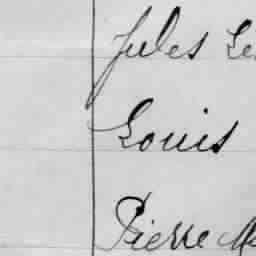 Jules Le
Louis
Pierre M